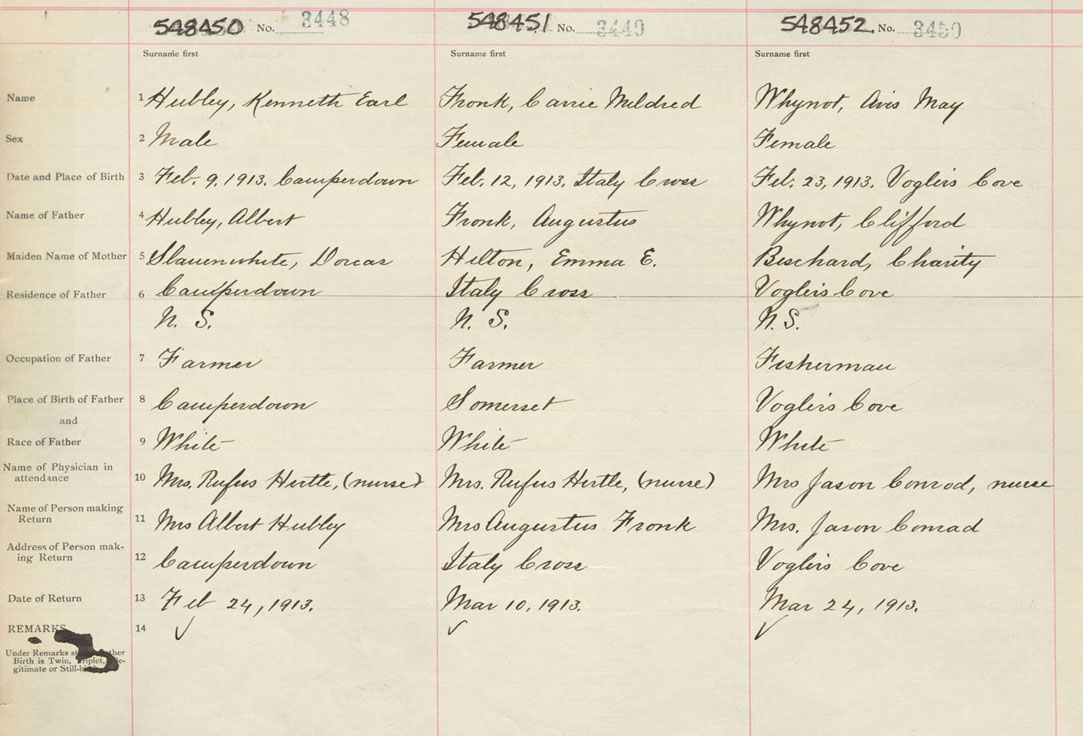 548450 No. 3448 548451 No. 3449 548452 No. 3450
Surname first Surname first Surname first
Name 1 Hubley, Kenneth Earl Fronk, Carrie Mildred Whynot, Avis May
Sex 2 Male Female Female
Date and Place of Birth 3 Feb. 9, 1913. Camperdown Feb. 12, 1913. Italy Cross Feb. 23, 1913. Voglers Cove
Name of Father 4 Hubley, Albert Fronk, Augustus Whynot, Clifford
Maiden Name of Mother 5 Slauenwhite, Dorcas Hilton, Emma E. Charity
Residence of Father 6 Camperdown Italy Cross Voglers Cove
N. S. N. S. N. S.
Occupation of Father 7 Farmer Farmer Fisherman
Place of Birth of Father 8 Camperdown Somerset Voglers Cove
and
Race of Father 9 White White White
Name of Physician in
attendance 10 Mrs. Rufus Hertle, (nurse) Mrs. Rufus Hertle, (nurse) Mrs Jason Conrod, nurse
Name of Person making
Return 11 Mrs Albert Hubley Mrs Augustus Fronk Mrs. Jason Conrad
Address of Person mak-
ing Return 12 Camperdown Italy Cross Voglers Cove
Date of Return 13 Feb 24, 1913. Mar 10, 1913. Mar 24, 1913.
REMARKS 14
Under Remarks
Birth is Twin, Triplet,
gitimate or